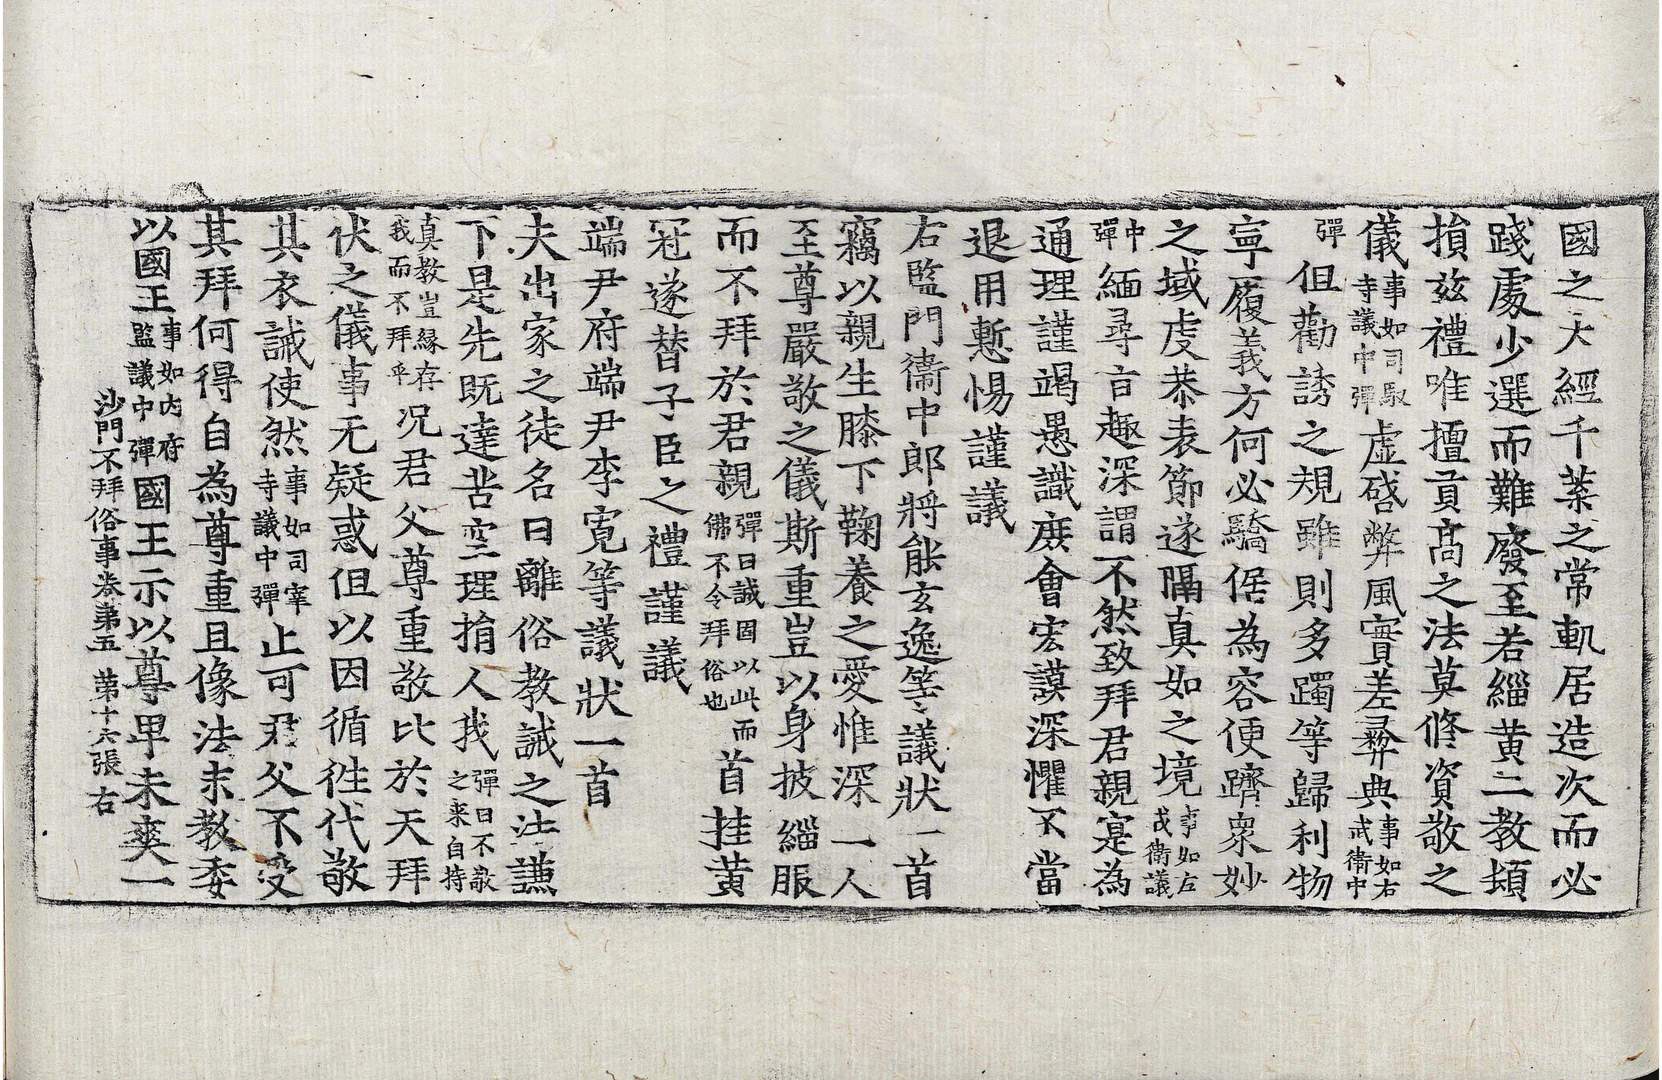 國之大經千葉之常軌居造次而必
踐處少選而難廢至若緇黃二教頓
損玆禮唯擅貢高之法莫修資敬之
儀事如司馭寺議中彈虛啓弊風實差彛典事如右武衛中
彈但勸誘之規雖則多躅等歸利物
寧履義方何必驕倨為容便躋衆妙
之域虔恭表節遂隔真如之境事如左戎衛議
中彈緬尋言趣深謂不然致拜君親寔為
通理謹竭愚識庶會宏謨深懼不當
退用慙惕謹議
右監門衛中郎將能玄逸等議狀一首
竊以親生膝下鞠養之愛惟深一人
至尊嚴敬之儀斯重豈以身披緇服
而不拜於君親彈曰誠固以此而佛不令拜俗也首挂黃
冠遂替子臣之禮謹議
端尹府端尹李寬等議狀一首
夫出家之徒名曰離俗教誡之法謙
下是先既達苦空理捐人我彈曰不敬之來自持
真教豈緣存我而不拜乎况君父尊重敬比於天拜
伏之儀事无疑惑但以因循徃代敬
其衣誡使然事如司宰寺議中彈止可君父不受
其拜何得自為尊重且像法末教委
以國王事如內府監議中彈國王示以尊卑未爽一
沙門不拜俗事卷第五　第十六張　右